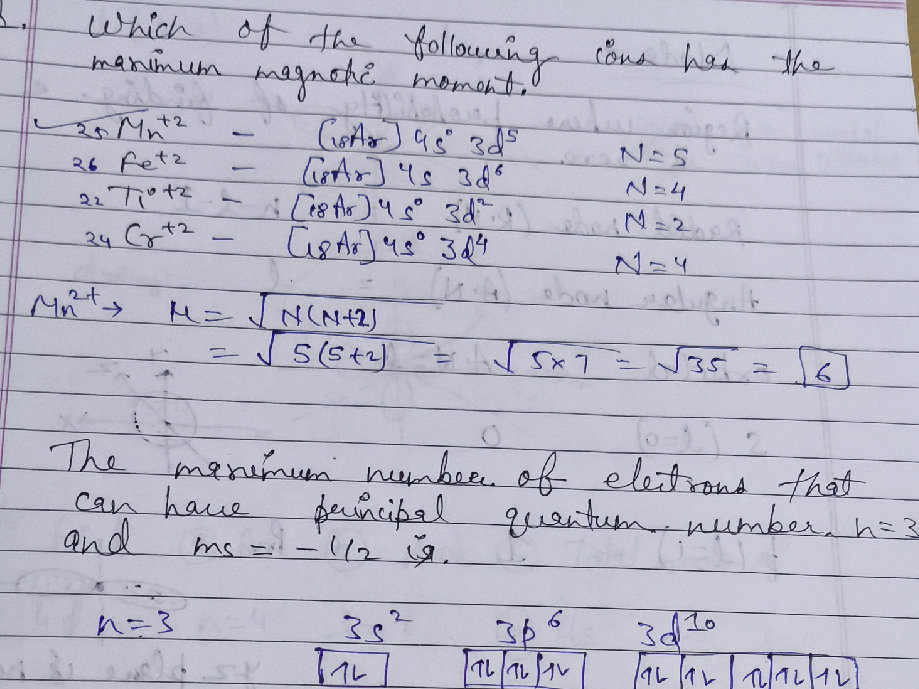 Which of the following ions has the
maximum magnetic moment.
25 Mn+2 – [18Ar] 4s⁰ 3d⁵ N=5
26 Fe+2 – [18Ar] 4s 3d⁶ N=4
22 Ti+2 – [18Ar] 4s⁰ 3d² N=2
24 Cr+2 – [18Ar] 4s⁰ 3d⁴ N=4
Mn²⁺ → μ = √N(N+2)
= √5(5+2) = √5×7 = √35 = 6
The maximum number of electrons that
can have principal quantum number n=3
and ms = -1/2 is.
n=3 3s² 3p⁶ 3d¹⁰
1L 1L 1L 1L 1L 1L 1L 1L 1L